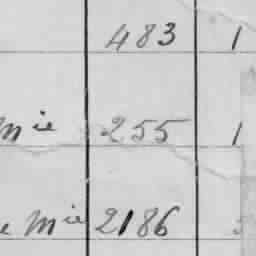 483 1
mie 255 1
e mie 2186